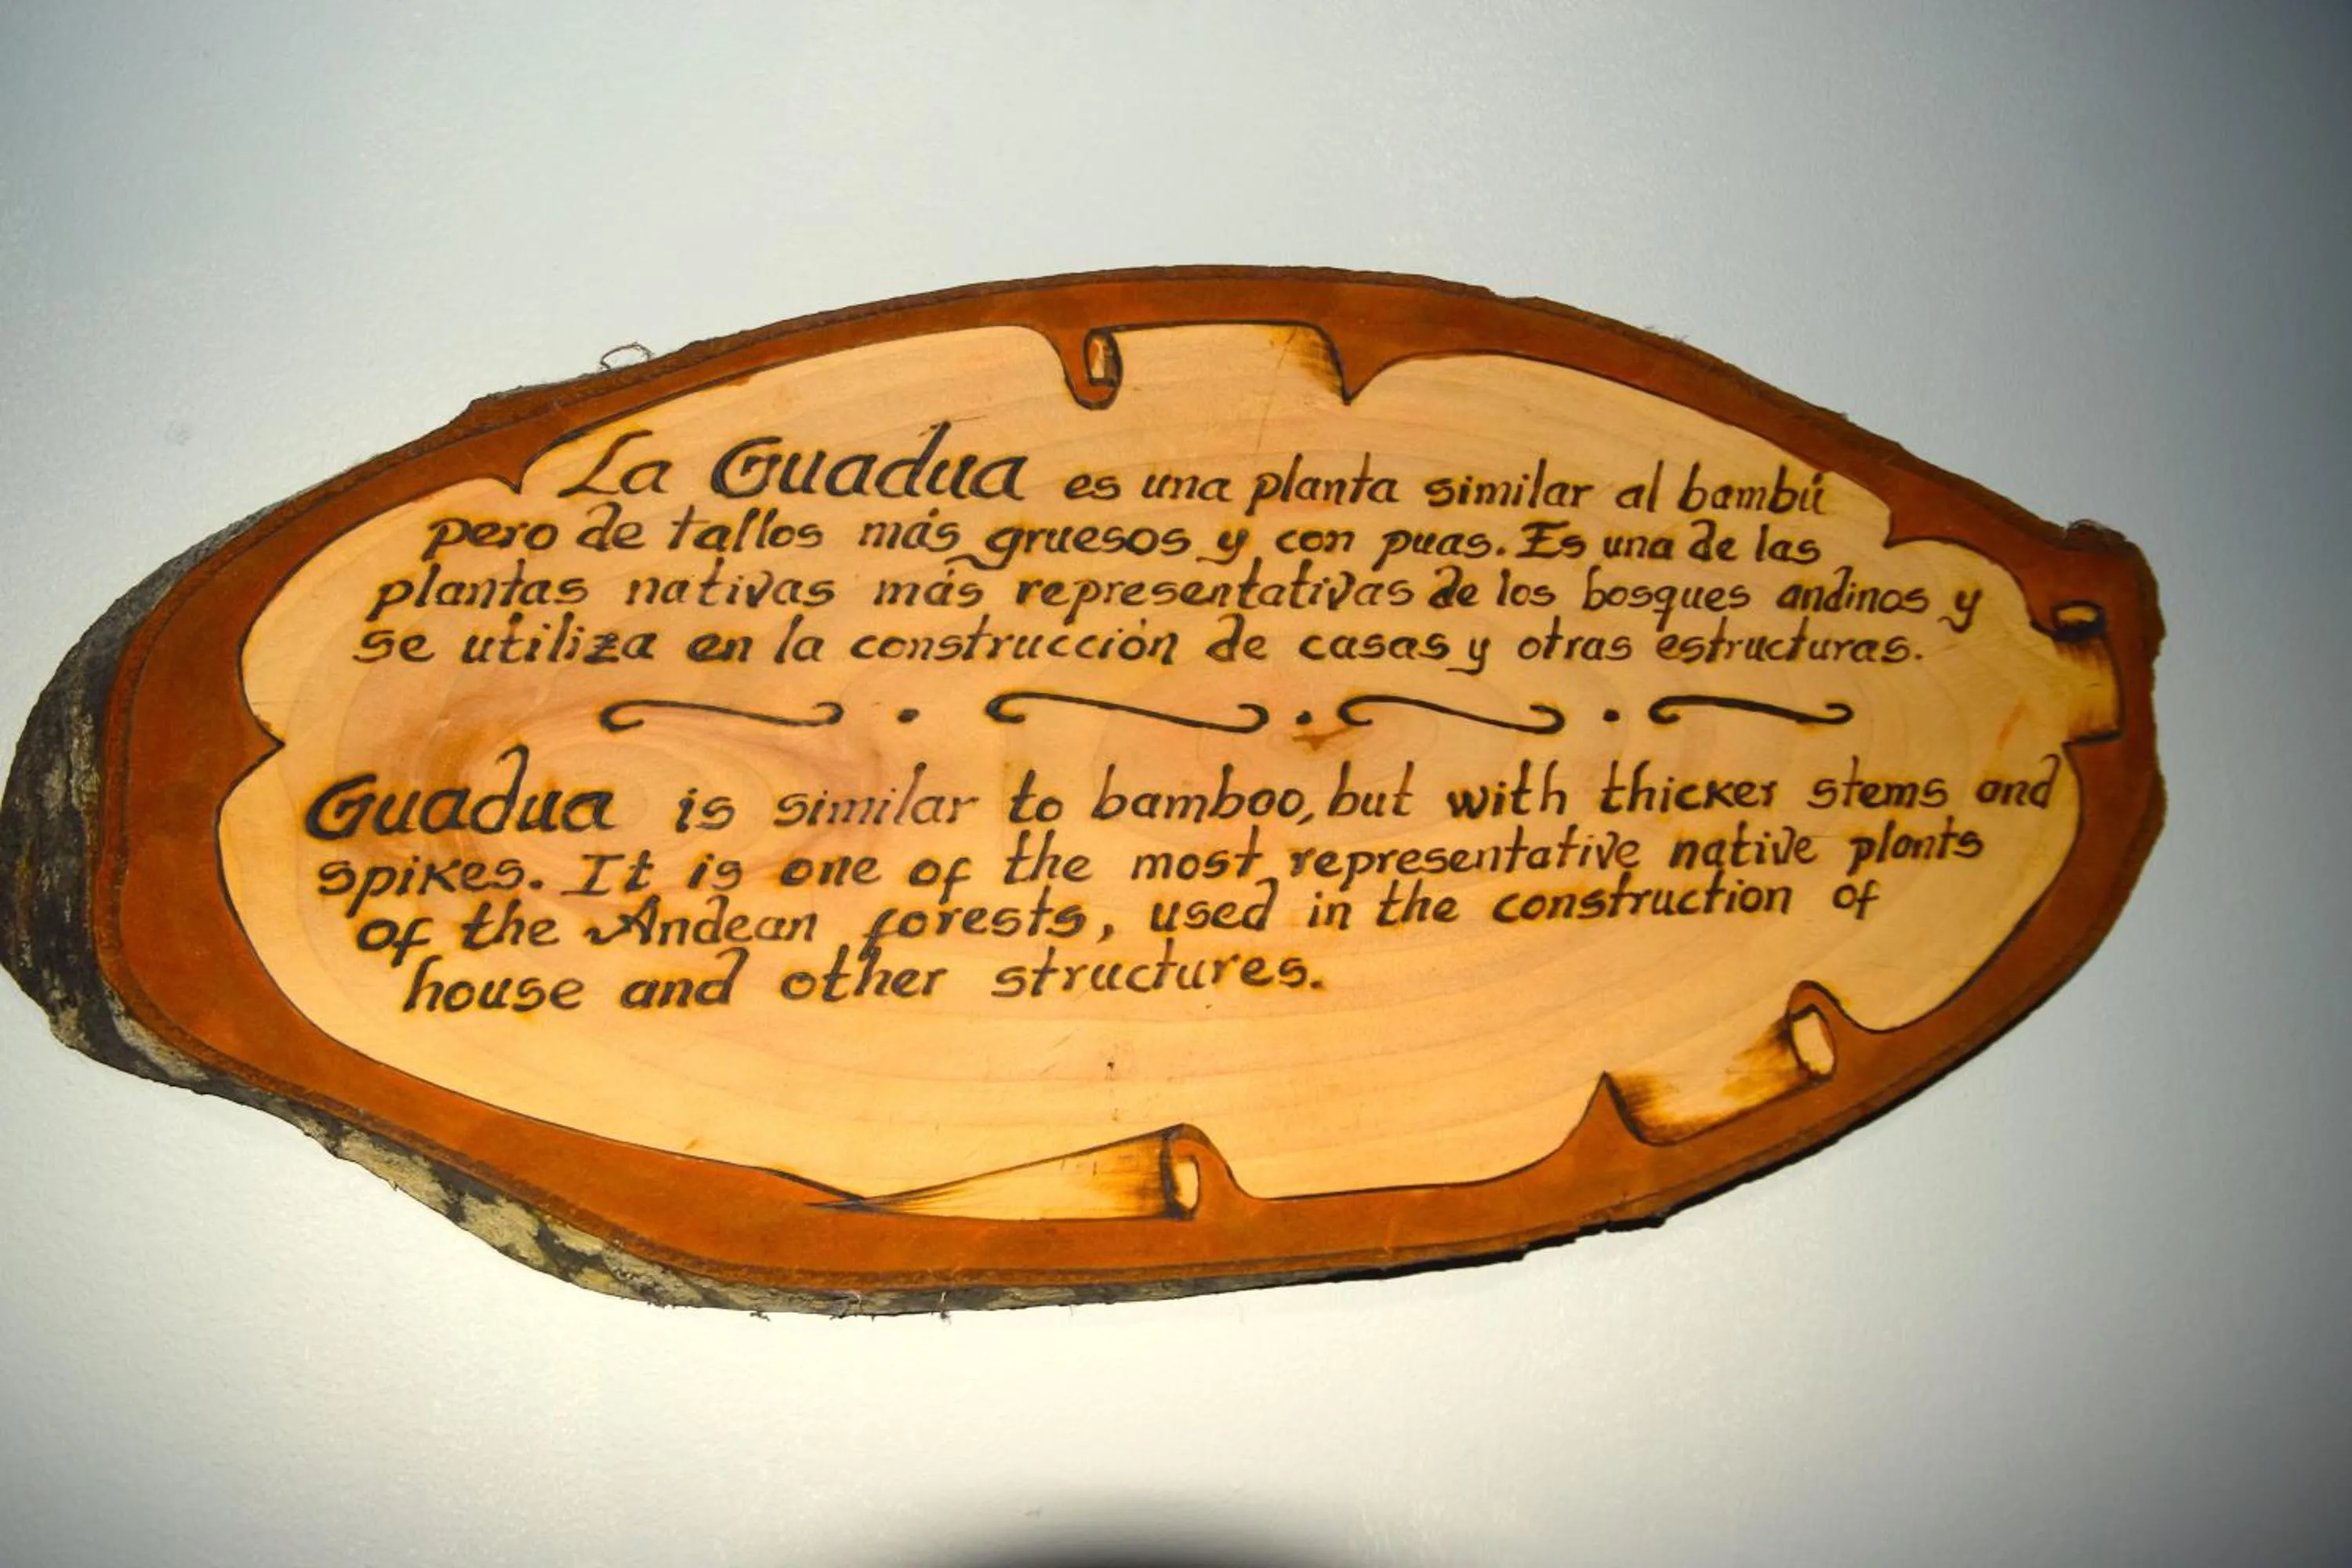 La Guadua es una planta similar al bambú
pero de tallos más gruesos y con puas. Es una de las
plantas nativas más representativas de los bosques andinos y
se utiliza en la construcción de casas y otras estructuras.
Guadua is similar to bamboo, but with thicker stems and
spikes. It is one of the most representative native plants
of the Andean forests, used in the construction of
house and other structures.